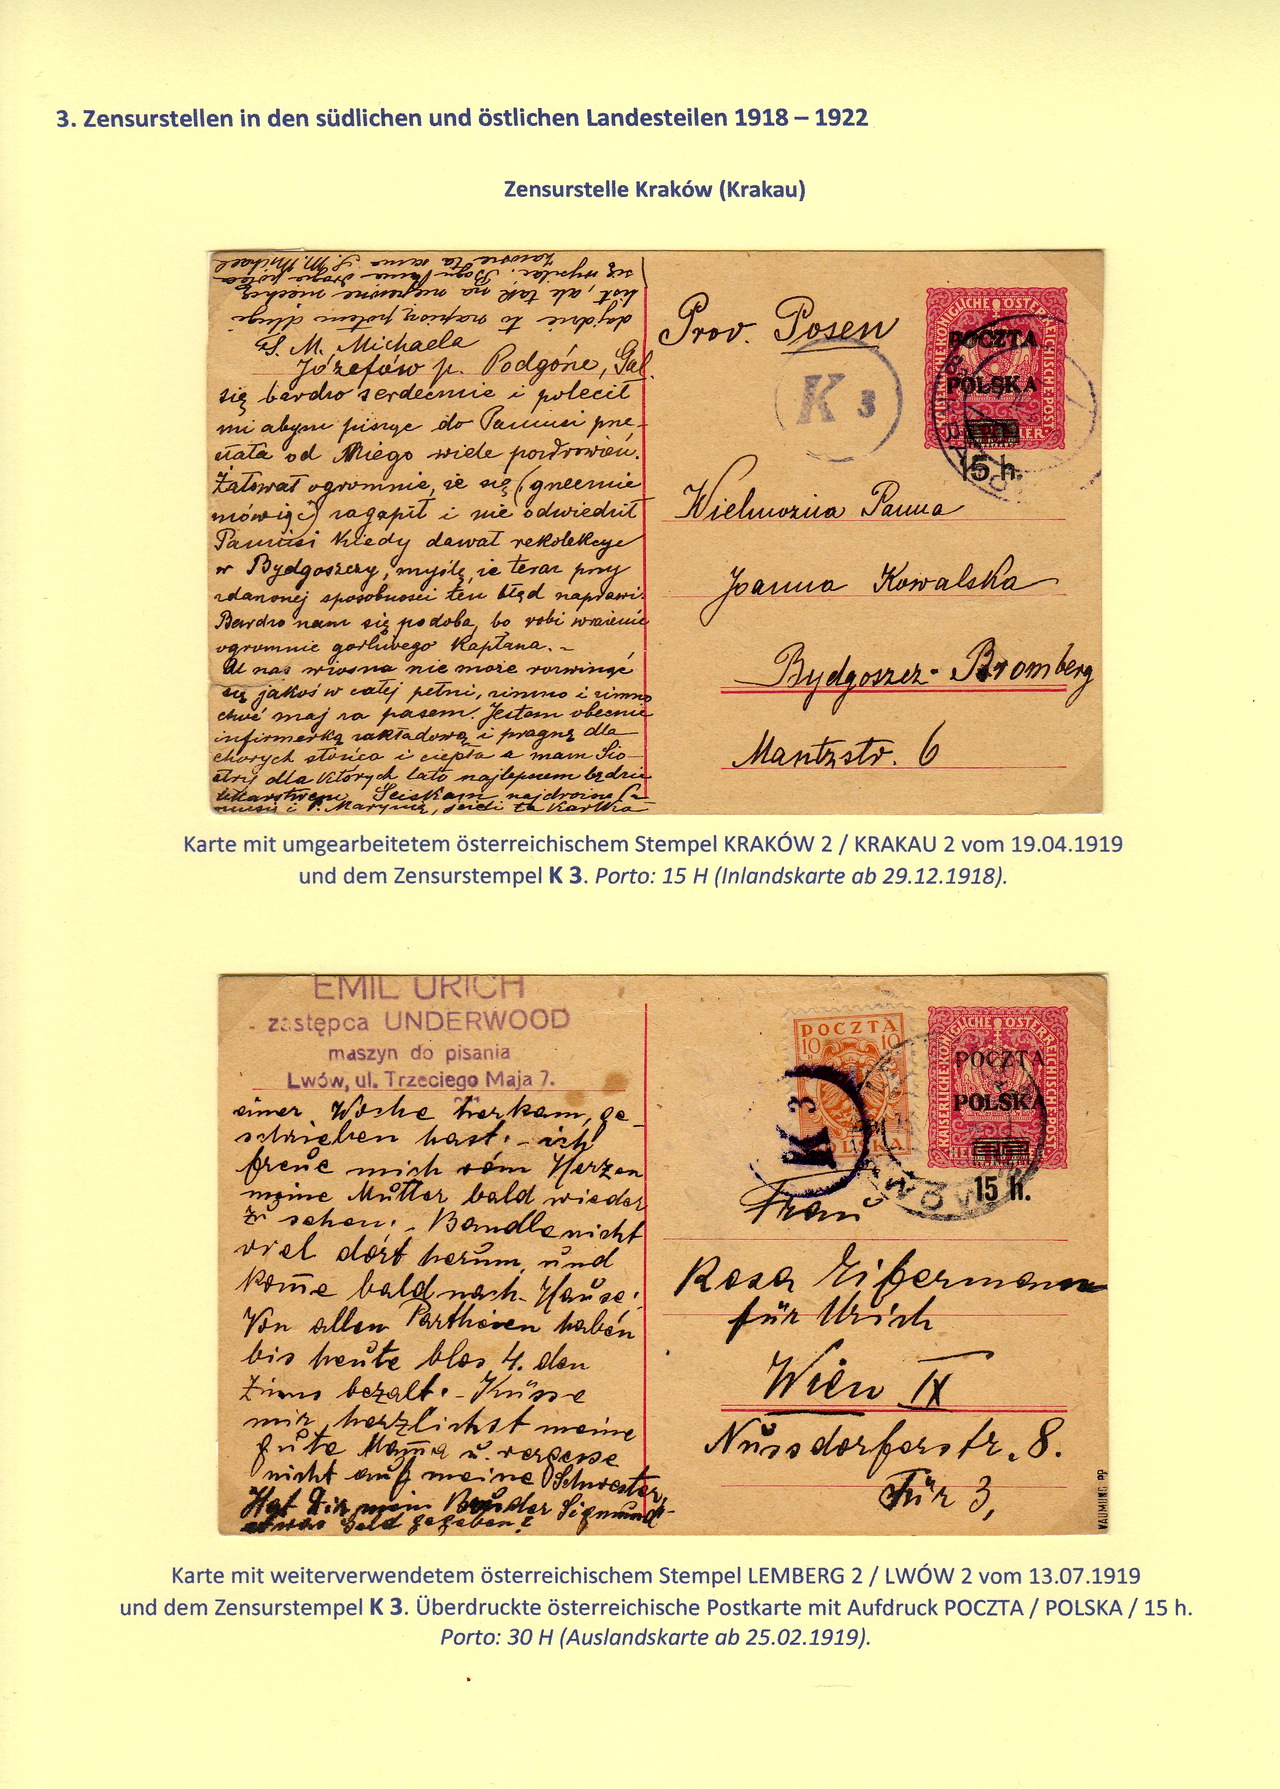 3. Zensurstellen in den südlichen und östlichen Landesteilen 1918 – 1922
Zensurstelle Kraków (Krakau)
dojdzie to napiszę potem długi
list, ale tak na niepewne niechcę
się wysilać. Bogu Panna drogie poleca
zawsze ta sama S. M. Michael
S. M. Michaela
Józefów p. Podgórze, Gal.
się bardzo serdecznie i polecił
mi abym pisząc do Panusi prze-
słała od Niego wiele pozdrowień.
Żałował ogromnie, że się (grzecznie
mówiąc) zagapił i nie odwiedził
Panusi kiedy dawał rekolekcye
w Bydgoszczy, myślę, że teraz przy
zdarzonej sposobności ten błąd naprawi.
Bardzo nam się podoba, bo robi wrażenie
ogromnie gorliwego kapłana. –
U nas wiosna nie może rozwinąć
się jakoś w całej pełni, zimno i zimno
choć maj za pasem. Jestem obecnie
infirmerką zakładową i pragnę dla
chorych słońca i ciepła a mam Sio-
stry dla których lato najlepszem będzie
lekarstwem. Ściskam najdroższe Pa-
nusie i P. Marynię, jeżeli ta kartka
Prov. Posen
K 3
KAISERLICHE KÖNIGLICHE ÖSTERREICHISCHE POST
POCZTA
POLSKA
15 h.
Wielmożna Panna
Joanna Kowalska
Bydgoszcz - Bromberg
Mantzstr. 6
Karte mit umgearbeitetem österreichischem Stempel KRAKÓW 2 / KRAKAU 2 vom 19.04.1919
und dem Zensurstempel K 3. Porto: 15 H (Inlandskarte ab 29.12.1918).
EMIL URICH
zastępca UNDERWOOD
maszyn do pisania
Lwów, ul. Trzeciego Maja 7.
einer Woche herkam, ge-
schrieben hast. – ich
freue mich vom Herzen
meine Mutter bald wieder
zu sehen. Bandle nicht
viel dort herum, und
kom̅e bald nach Hause.
Von allen Partheien haben
bis heute blos 4. den
Zins bezalt. – Küsse
mir herzlichst meine
gute Mam̅a u. vergesse
nicht auf meine Schwester,
Hat Dir mein Bruder Sigmund
etwas Geld gegeben?
POCZTA
10 10
POLSKA
K 3
KAISERLICHE KÖNIGLICHE ÖSTERREICHISCHE POST
POCZTA
POLSKA
15 h.
Frau
Rosa Eifermann
für Urich
Wien IX
Nussdorferstr. 8.
Tür 3,
VAUMUND PP
Karte mit weiterverwendetem österreichischem Stempel LEMBERG 2 / LWÓW 2 vom 13.07.1919
und dem Zensurstempel K 3. Überdruckte österreichische Postkarte mit Aufdruck POCZTA / POLSKA / 15 h.
Porto: 30 H (Auslandskarte ab 25.02.1919).